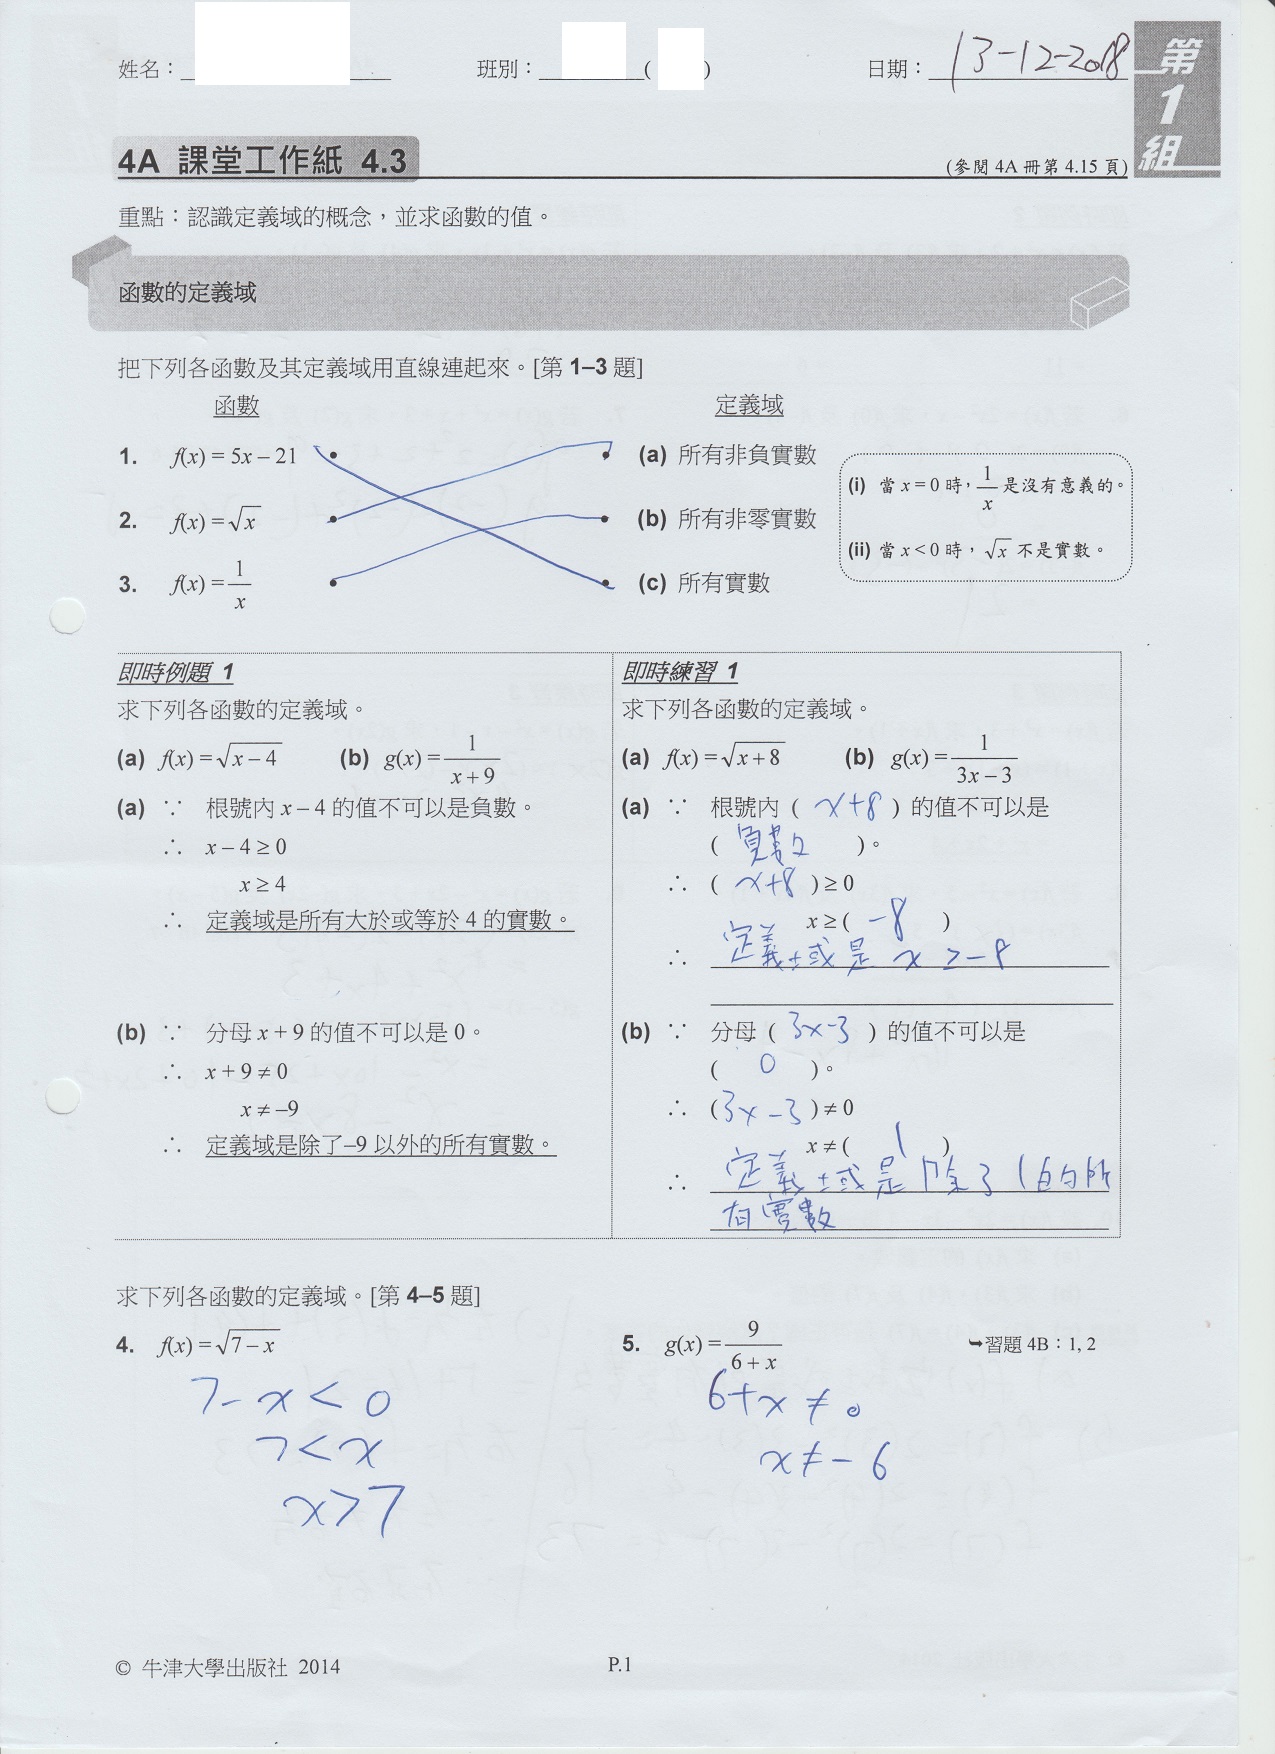 姓名： 班別： ( ) 日期： 13-12-2018
第1組
4A 課堂工作紙 4.3 (參閱 4A 冊第 4.15 頁)
重點：認識定義域的概念，並求函數的值。
函數的定義域
把下列各函數及其定義域用直線連起來。[第 1–3 題]
函數 定義域
1. f(x) = 5x – 21 (a) 所有非負實數
2. f(x) = √x (b) 所有非零實數
3. f(x) = 1/x (c) 所有實數
(i) 當 x = 0 時，1/x 是沒有意義的。
(ii) 當 x < 0 時，√x 不是實數。
即時例題 1
求下列各函數的定義域。
(a) f(x) = √(x – 4) (b) g(x) = 1/(x + 9)
(a) ∵ 根號內 x – 4 的值不可以是負數。
∴ x – 4 ≥ 0
x ≥ 4
∴ 定義域是所有大於或等於 4 的實數。
(b) ∵ 分母 x + 9 的值不可以是 0。
∴ x + 9 ≠ 0
x ≠ –9
∴ 定義域是除了–9 以外的所有實數。
即時練習 1
求下列各函數的定義域。
(a) f(x) = √(x + 8) (b) g(x) = 1/(3x – 3)
(a) ∵ 根號內 ( x+8 ) 的值不可以是
( 負數 )。
∴ ( x+8 ) ≥ 0
x ≥ ( -8 )
∴ 定義域是 x ≥ -8
(b) ∵ 分母 ( 3x-3 ) 的值不可以是
( 0 )。
∴ ( 3x-3 ) ≠ 0
x ≠ ( 1 )
∴ 定義域是除了1的所
有實數
求下列各函數的定義域。[第 4–5 題]
4. f(x) = √(7 – x) 5. g(x) = 9/(6 + x) ➥習題 4B：1, 2
7-x < 0
7 < x
x > 7
6+x ≠ 0
x ≠ -6
© 牛津大學出版社 2014 P.1